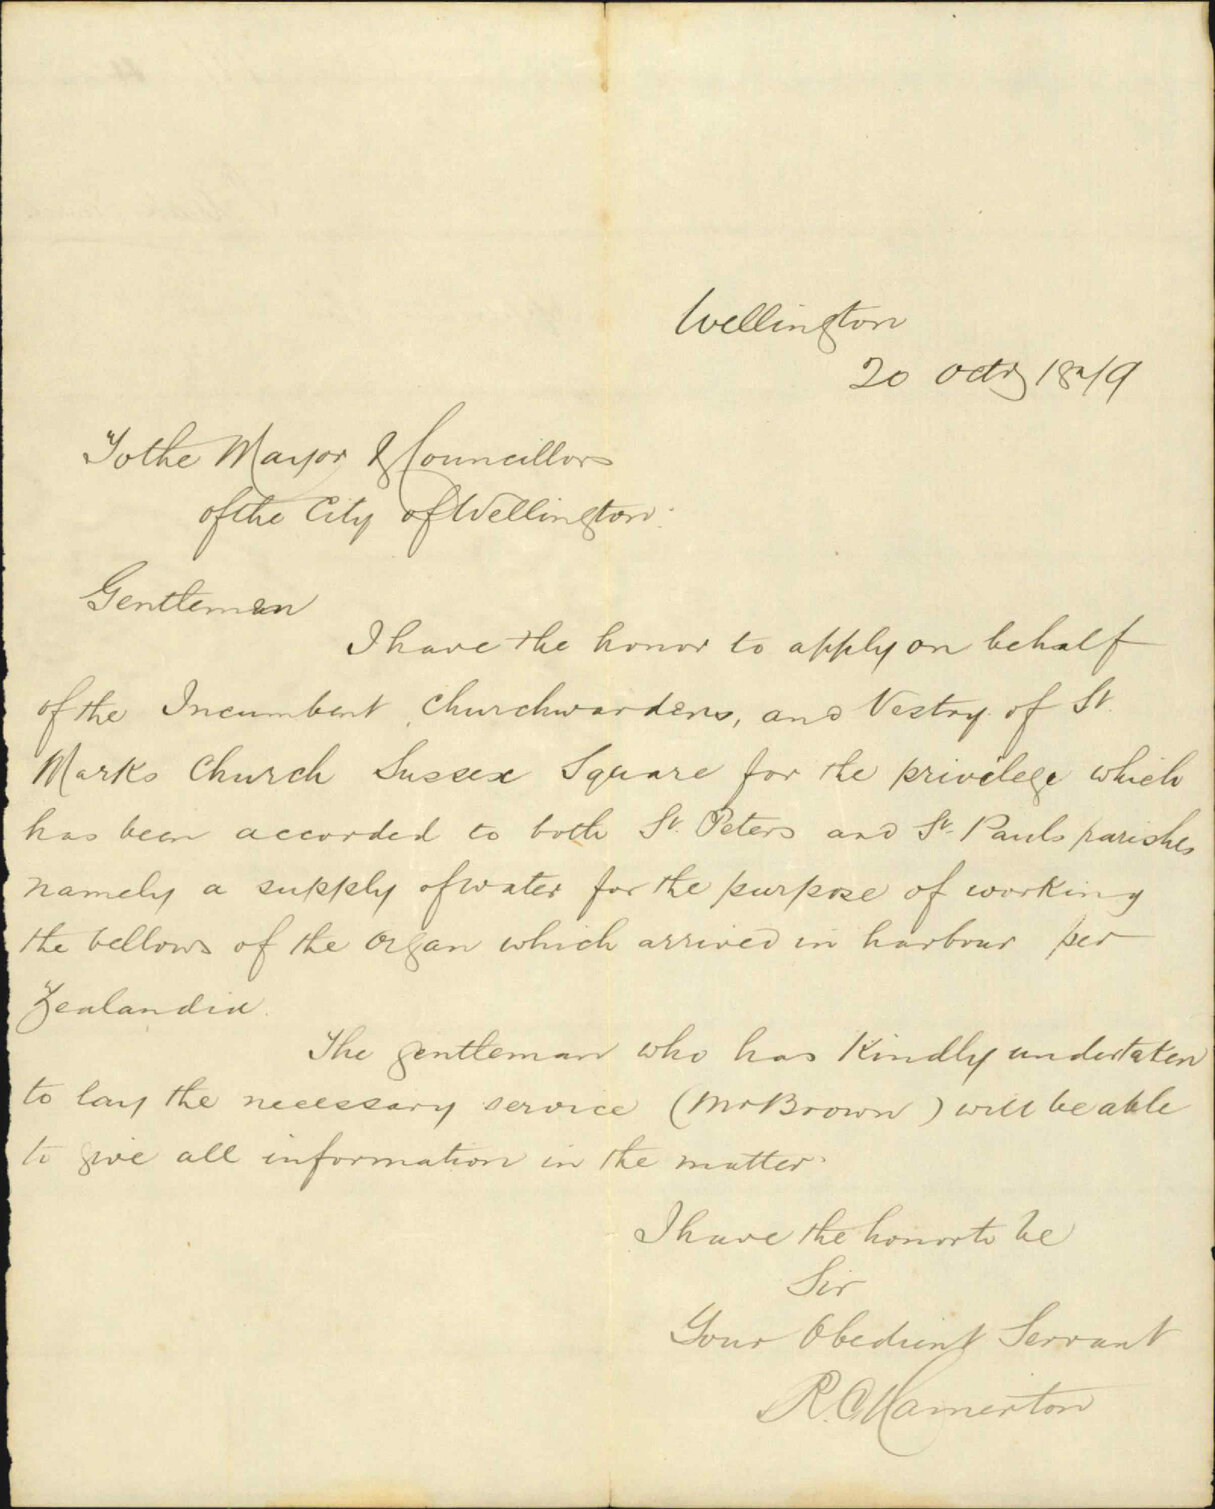 Wellington
20 Octr 1879
To the Mayor & Councillors
of the City of Wellington.
Gentlemen
I have the honor to apply on behalf
of the Incumbent, Churchwardens, and Vestry of St.
Marks Church Sussex Square for the privilege which
has been accorded to both St. Peters and St. Pauls parishes
namely a supply of water for the purpose of working
the bellows of the organ which arrived in harbour per
Zealandia.
The gentleman who has kindly undertaken
to lay the necessary service (Mr Brown) will be able
to give all information in the matter.
I have the honor to be
Sir
Your Obedient Servant
R. C. Hamerton